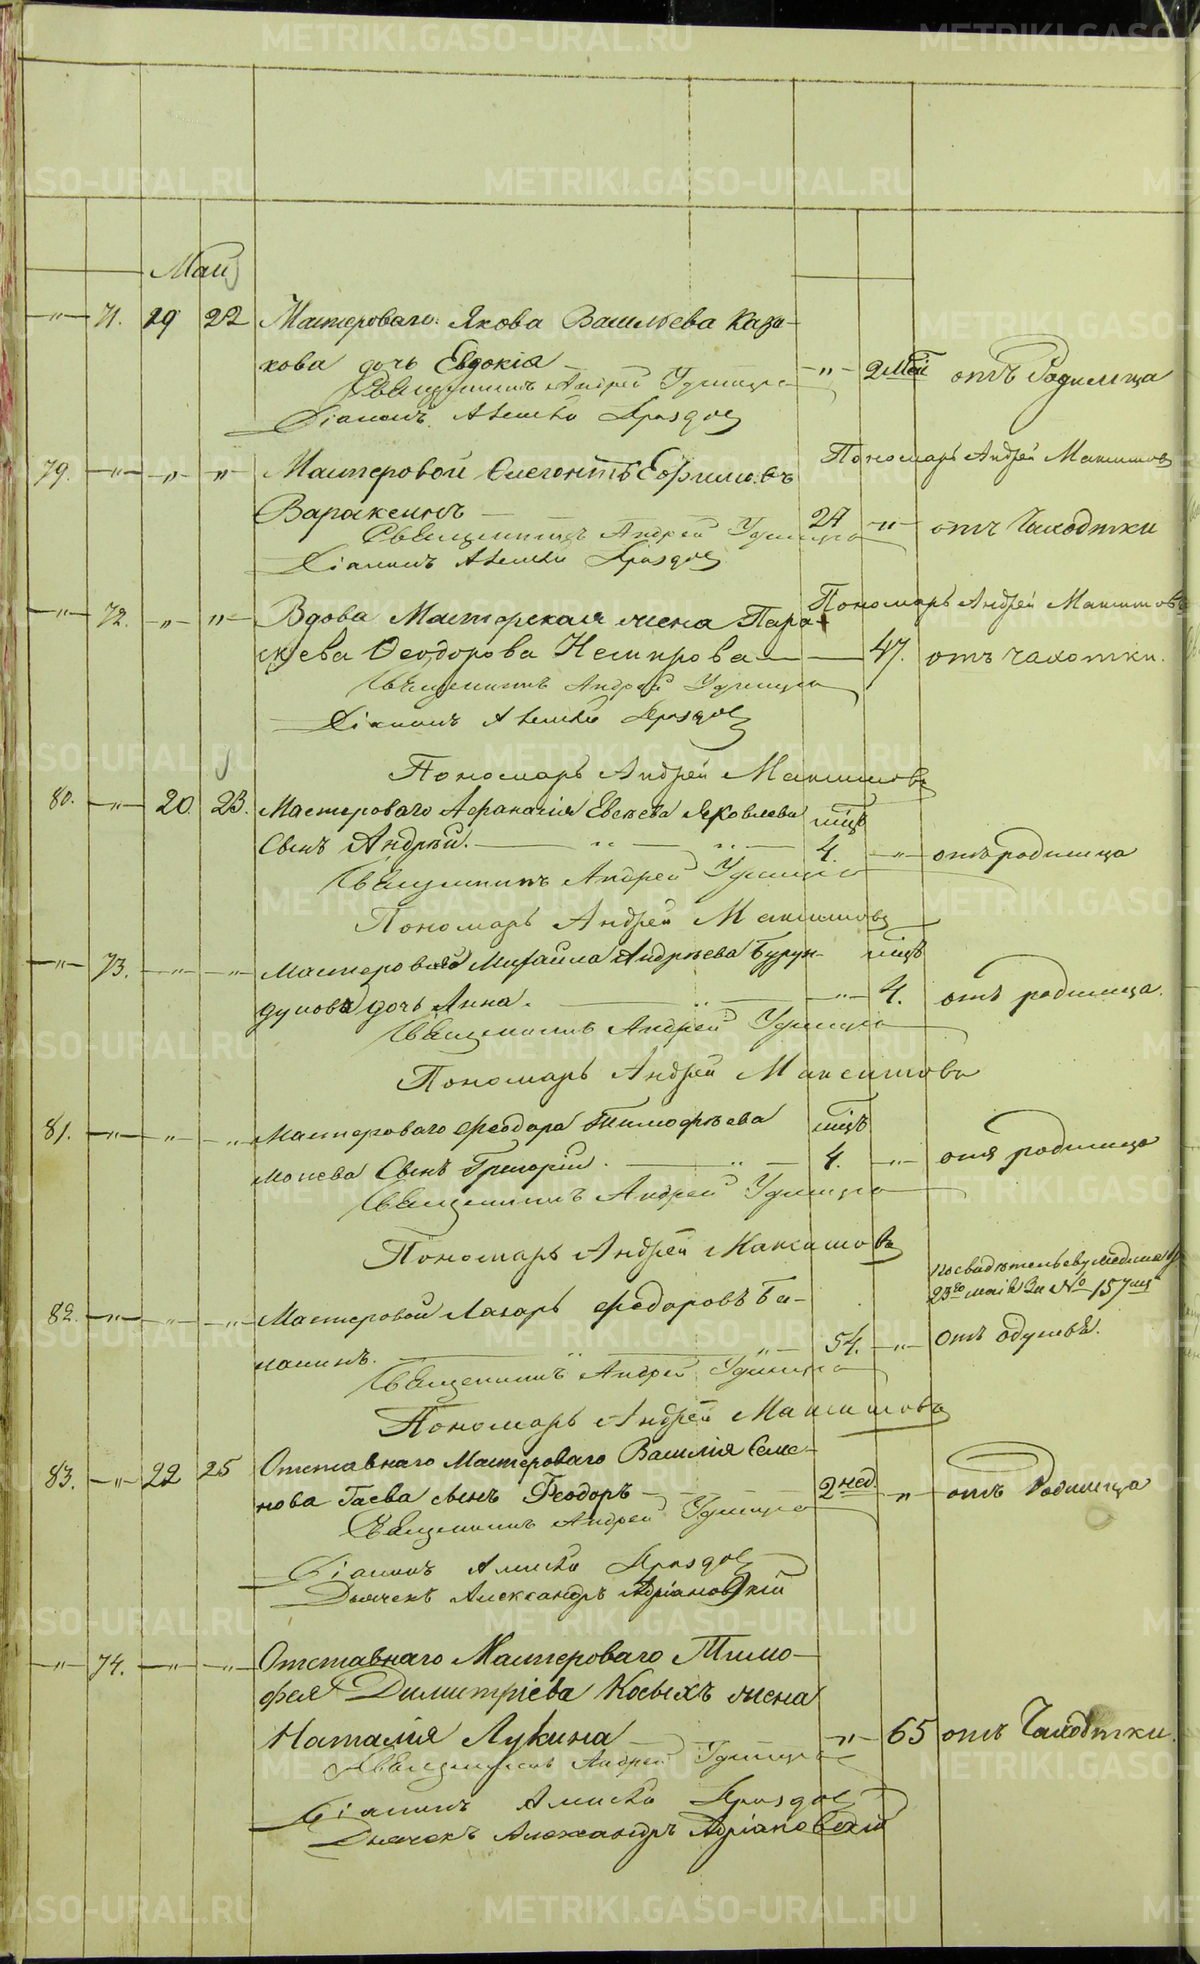 Май
— „ — 71. 19 22 Мастероваго Якова Васильева Каза-
кова дочь Евдокія — „ — 2 мѣс. отъ Родимца
Священникъ Андрей Удинцевъ
Діаконъ Алексѣй Дроздовъ
Пономарь Андрей Максимовъ
79. — „ — „ — „ — Мастеровой Ефимовъ
Вараксинъ — 24 — „ — отъ Чахотки
Священникъ Андрей Удинцевъ
Діаконъ Алексѣй Дроздовъ
Пономарь Андрей Максимовъ
— „ — 72. — „ — „ — Вдова Мастерская жена Пара-
скева Ѳеодорова — 47. отъ чахотки.
Священникъ Андрей Удинцевъ
Діаконъ Алексѣй Дроздовъ
Пономарь Андрей Максимовъ
80. — „ — 20. 23. Мастероваго Афанасія Евсѣева Яковлева мѣц.
Сынъ Андрей. — 4. — „ — отъ родимца
Священникъ Андрей Удинцевъ
Пономарь Андрей Максимовъ
— „ — 73. — „ — „ — Мастероваго Михаила Андрѣева Бурун- мѣц.
дукова дочь Анна. — „ — 4. отъ родимца.
Священникъ Андрей Удинцевъ
Пономарь Андрей Максимовъ
81. — „ — „ — „ — Мастероваго Феодора Тимофѣева мѣц.
Мокѣева Сынъ Григорій. — 4. — „ — отъ родимца
Священникъ Андрей Удинцевъ
Пономарь Андрей Максимовъ
82. — „ — „ — „ — Мастеровой Лазарь Федоровъ Ба-
23го маія За № 157
— 54. — „ — отъ одушья.
Священникъ Андрей Удинцевъ
Пономарь Андрей Максимовъ
83. — „ — 22 25 Отставнаго Мастероваго Василія Семе-
нова Гаева сынъ Феодоръ — 2 нед. — „ — отъ Родимца
Священникъ Андрей Удинцевъ
Діаконъ Алексѣй Дроздовъ
Дьячекъ Александръ Адріановскій
— „ — 74. — „ — „ — Отставнаго Мастероваго Тимо-
фея Димитріева Косыхъ жена
Наталія Лукина — „ — 65 отъ Чахотки.
Священникъ Андрей Удинцевъ
Діаконъ Алексѣй Дроздовъ
Дьячекъ Александръ Адріановскій
METRIKI.GASO-URAL.RU